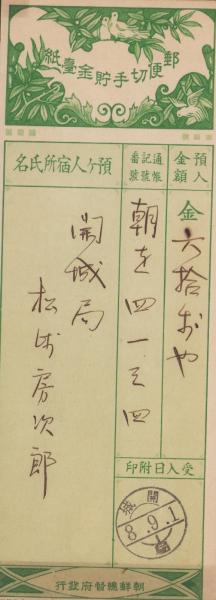 郵便切手貯金臺紙
預入金額
金六拾戔也
通帳記號番號
朝を四一三四
預ケ人宿所氏名
開城局
松井房次郎
受入日附印
開城
8.9.1
朝鮮總督府發行